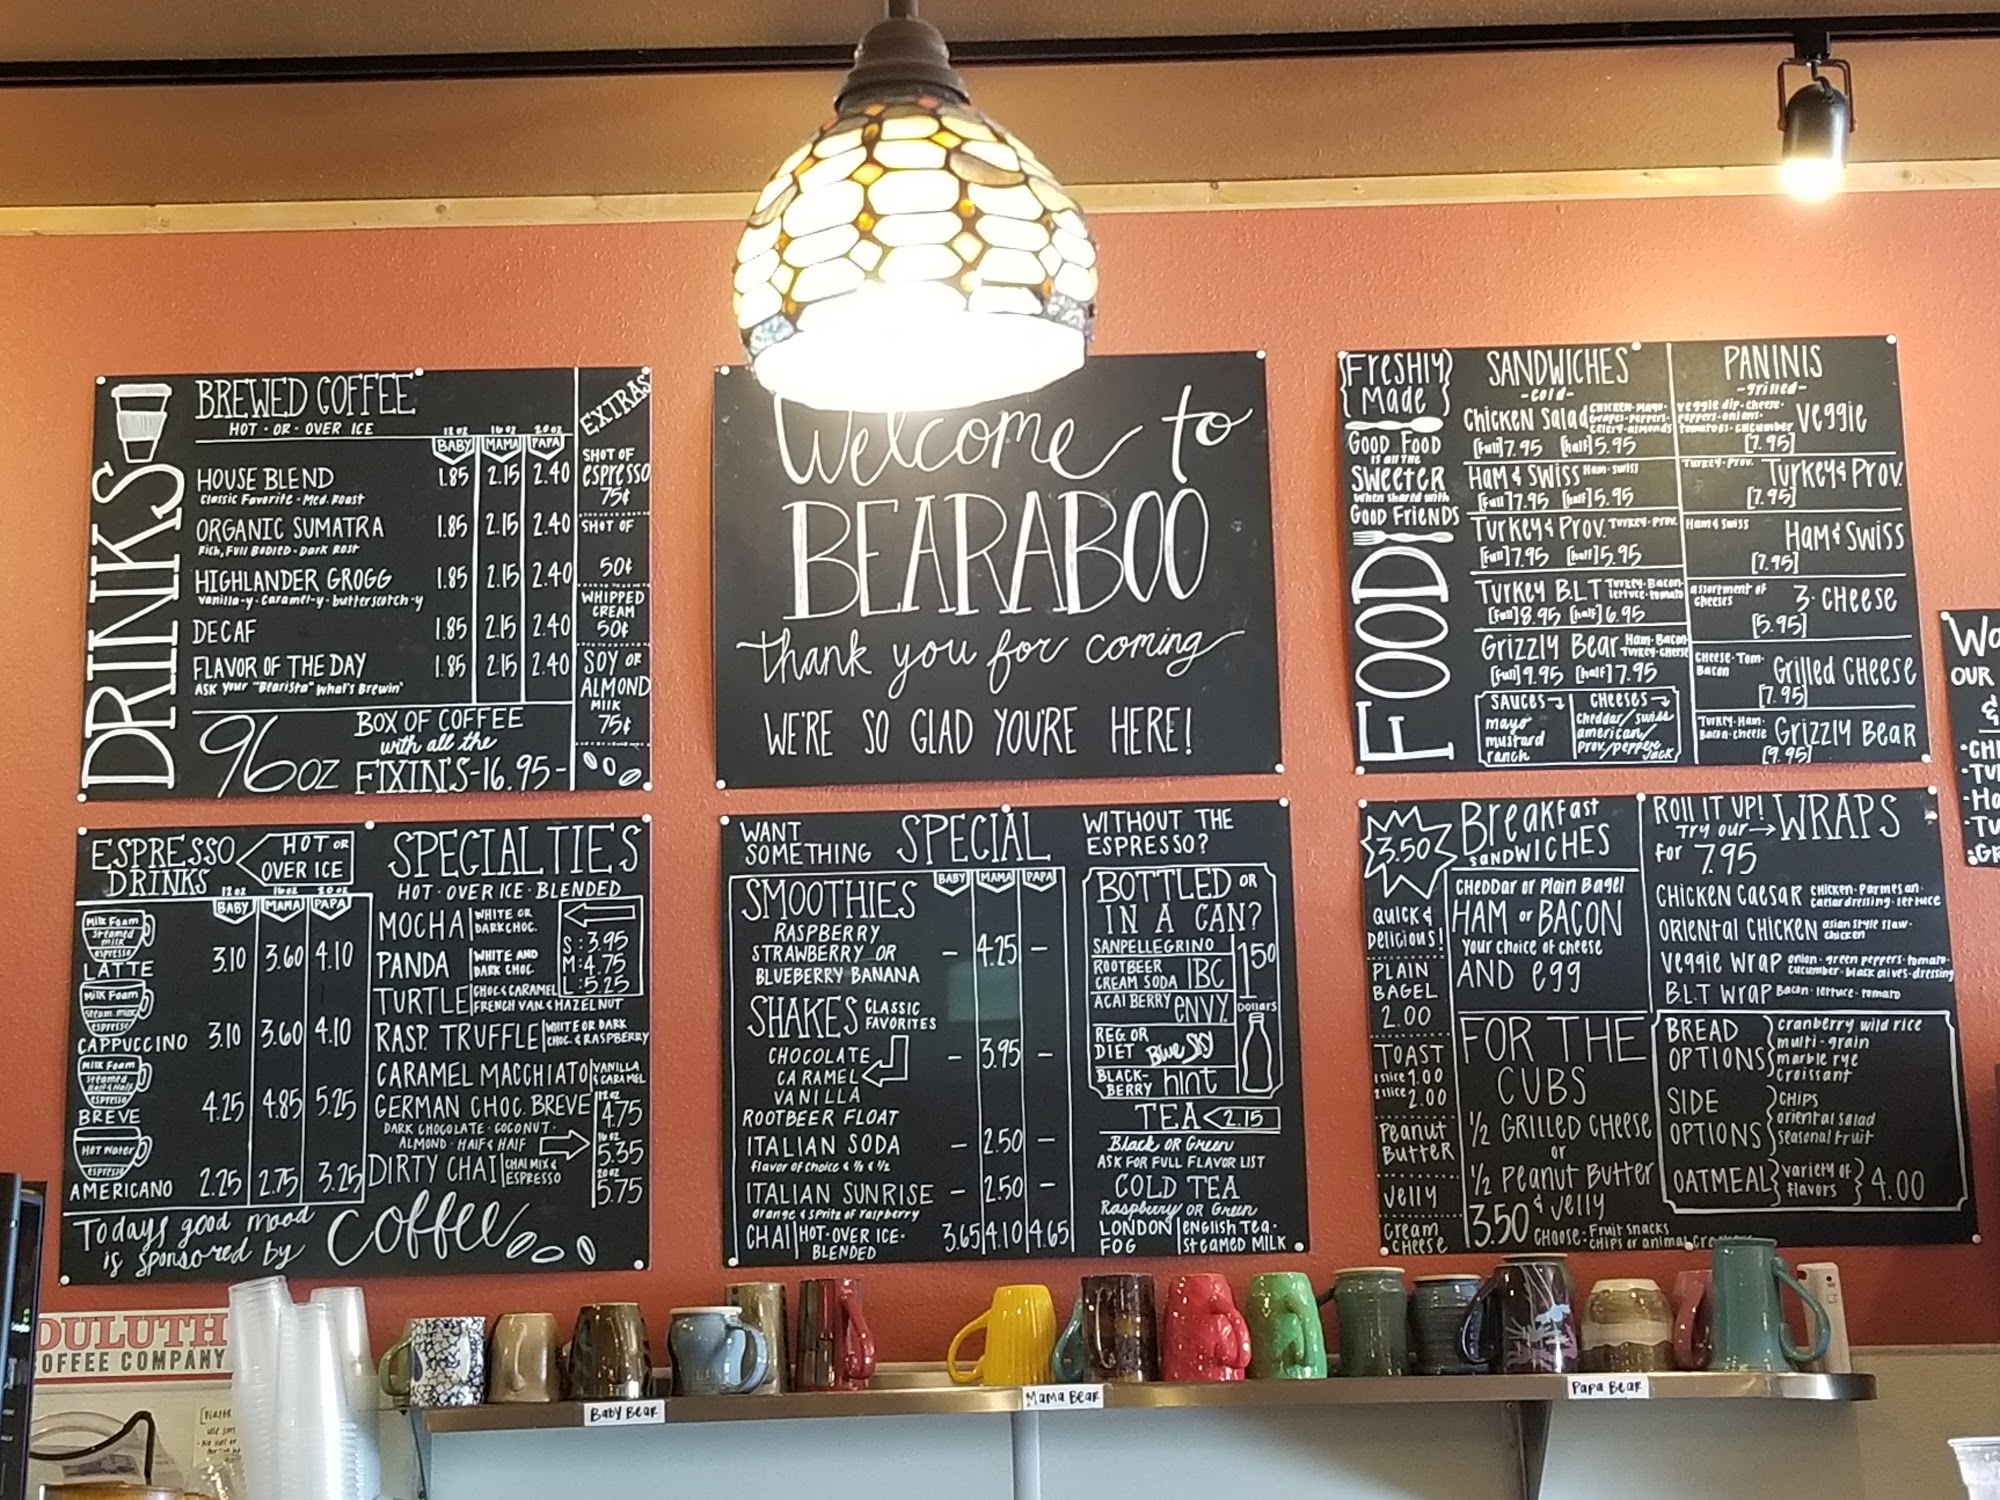 DRINKS
BREWED COFFEE
HOT · OR · OVER ICE
12 oz 16 oz 20 oz
BABY MAMA PAPA
HOUSE BLEND 1.85 2.15 2.40
Classic Favorite - Med. Roast
ORGANIC SUMATRA 1.85 2.15 2.40
Rich, Full Bodied - Dark Rost
HIGHLANDER GROGG 1.85 2.15 2.40
vanilla-y - caramel-y - butterscotch-y
DECAF 1.85 2.15 2.40
FLAVOR OF THE DAY 1.85 2.15 2.40
ASK your "Bearista" what's Brewin'
96oz BOX OF COFFEE
with all the
FIXIN'S-16.95-
EXTRAS
SHOT OF
espresso
75¢
SHOT OF
50¢
WHIPPED
CREAM
50¢
SOY OR
ALMOND
MILK
75¢
Welcome to
BEARABOO
thank you for coming
WE'RE SO GLAD YOU'RE HERE!
Freshly
Made
GOOD FOOD
IS all THE
SWEETER
when shared with
GOOD FRIENDS
FOOD
SANDWICHES
-cold-
Chicken Salad CHICKEN-MAYO-
GRAPES-PEPPERS-
CELERY-ALMONDS
[full]7.95 [half]5.95
HAM & SWISS Ham-swiss
[full]7.95 [half]5.95
TURKEY & PROV. TURKEY-PROV.
[full]7.95 [half]5.95
TURKEY B.L.T TURKEY-Bacon-
lettuce-tomato
[full]8.95 [half]6.95
Grizzly Bear Ham-Bacon-
Turkey-cheese
[full]9.95 [half]7.95
SAUCES
mayo
mustard
ranch
CHEESES
cheddar/swiss
american/
prov/pepper
jack
PANINIS
-grilled-
veggie dip-cheese-
peppers-onions-
tomatoes-cucumber Veggie
[7.95]
Turkey-Prov. Turkey & Prov.
[7.95]
Ham & Swiss Ham & Swiss
[7.95]
assortment of
cheeses 3-CHEESE
[5.95]
CHEESE-Tom-
Bacon Grilled CHEESE
[7.95]
Turkey-Ham-
Bacon-cheese Grizzly Bear
[9.95]
OUR
&
ESPRESSO
DRINKS
HOT OR
OVER ICE
12 oz 16 oz 20 oz
BABY MAMA PAPA
Milk Foam
Steamed
milk
espresso
LATTE 3.10 3.60 4.10
Milk Foam
Steam milk
espresso
CAPPUCCINO 3.10 3.60 4.10
Milk Foam
Steamed
Half & Half
espresso
BREVE 4.25 4.85 5.25
HOT Water
espresso
AMERICANO 2.25 2.75 3.25
Todays good mood
is sponsored by
coffee
SPECIALTIES
HOT · OVER ICE · BLENDED
MOCHA WHITE OR
DARK CHOC.
PANDA WHITE AND
DARK CHOC.
S: 3.95
M: 4.75
L: 5.25
TURTLE CHOC & CARAMEL
FRENCH VAN. & HAZELNUT
RASP. TRUFFLE WHITE OR DARK
CHOC. & RASPBERRY
CARAMEL MACCHIATO VANILLA
& CARAMEL
GERMAN CHOC. BREVE
DARK CHOCOLATE - COCONUT -
ALMOND - HALF & HALF
DIRTY CHAI CHAI MIX &
ESPRESSO
12 oz
4.75
16 oz
5.35
20 oz
5.75
WANT
SOMETHING SPECIAL WITHOUT THE
ESPRESSO?
BABY MAMA PAPA
SMOOTHIES
RASPBERRY
STRAWBERRY OR - 4.25 -
BLUEBERRY BANANA
SHAKES CLASSIC
FAVORITES
CHOCOLATE - 3.95 -
CARAMEL
VANILLA
ROOTBEER FLOAT
ITALIAN SODA - 2.50 -
flavor of choice & ½ & ½
ITALIAN SUNRISE - 2.50 -
orange & spritz of raspberry
CHAI HOT-OVER ICE- 3.65 4.10 4.65
BLENDED
BOTTLED OR
IN A CAN?
SANPELLEGRINO
ROOTBEER
CREAM SODA IBC
ACAI BERRY ENVY
REG. OR
DIET Blue Sky
BLACK-
BERRY hint
1.50
Dollars
TEA 2.15
Black OR Green
ASK FOR FULL FLAVOR LIST
COLD TEA
Raspberry OR Green
LONDON
FOG ENGLISH TEA-
STEAMED MILK
3.50
Breakfast
SANDWICHES
CHEDDAR or Plain Bagel
HAM or BACON
Your choice of cheese
AND egg
QUICK &
Delicious!
PLAIN
BAGEL
2.00
TOAST
1 slice 1.00
2 slice 2.00
Peanut
BUTTER
Jelly
CREAM
CHEESE
FOR THE
CUBS
½ GRILLED CHEESE
or
½ Peanut Butter
& Jelly
3.50 CHOOSE: Fruit snacks
CHIPS or animal
ROLL IT UP!
Try our WRAPS
for 7.95
CHICKEN CAESAR CHICKEN-Parmesan-
caesar dressing-lettuce
ORIENTAL CHICKEN asian style slaw-
chicken
VEGGIE WRAP onion-green peppers-tomato-
cucumber-black olives-dressing
B.L.T WRAP Bacon-lettuce-tomato
BREAD
OPTIONS cranberry wild rice
multi-grain
marble rye
croissant
SIDE
OPTIONS CHIPS
oriental salad
seasonal fruit
OATMEAL variety of
flavors 4.00
DULUTH
COFFEE COMPANY
Baby Bear
Mama Bear
Papa Bear